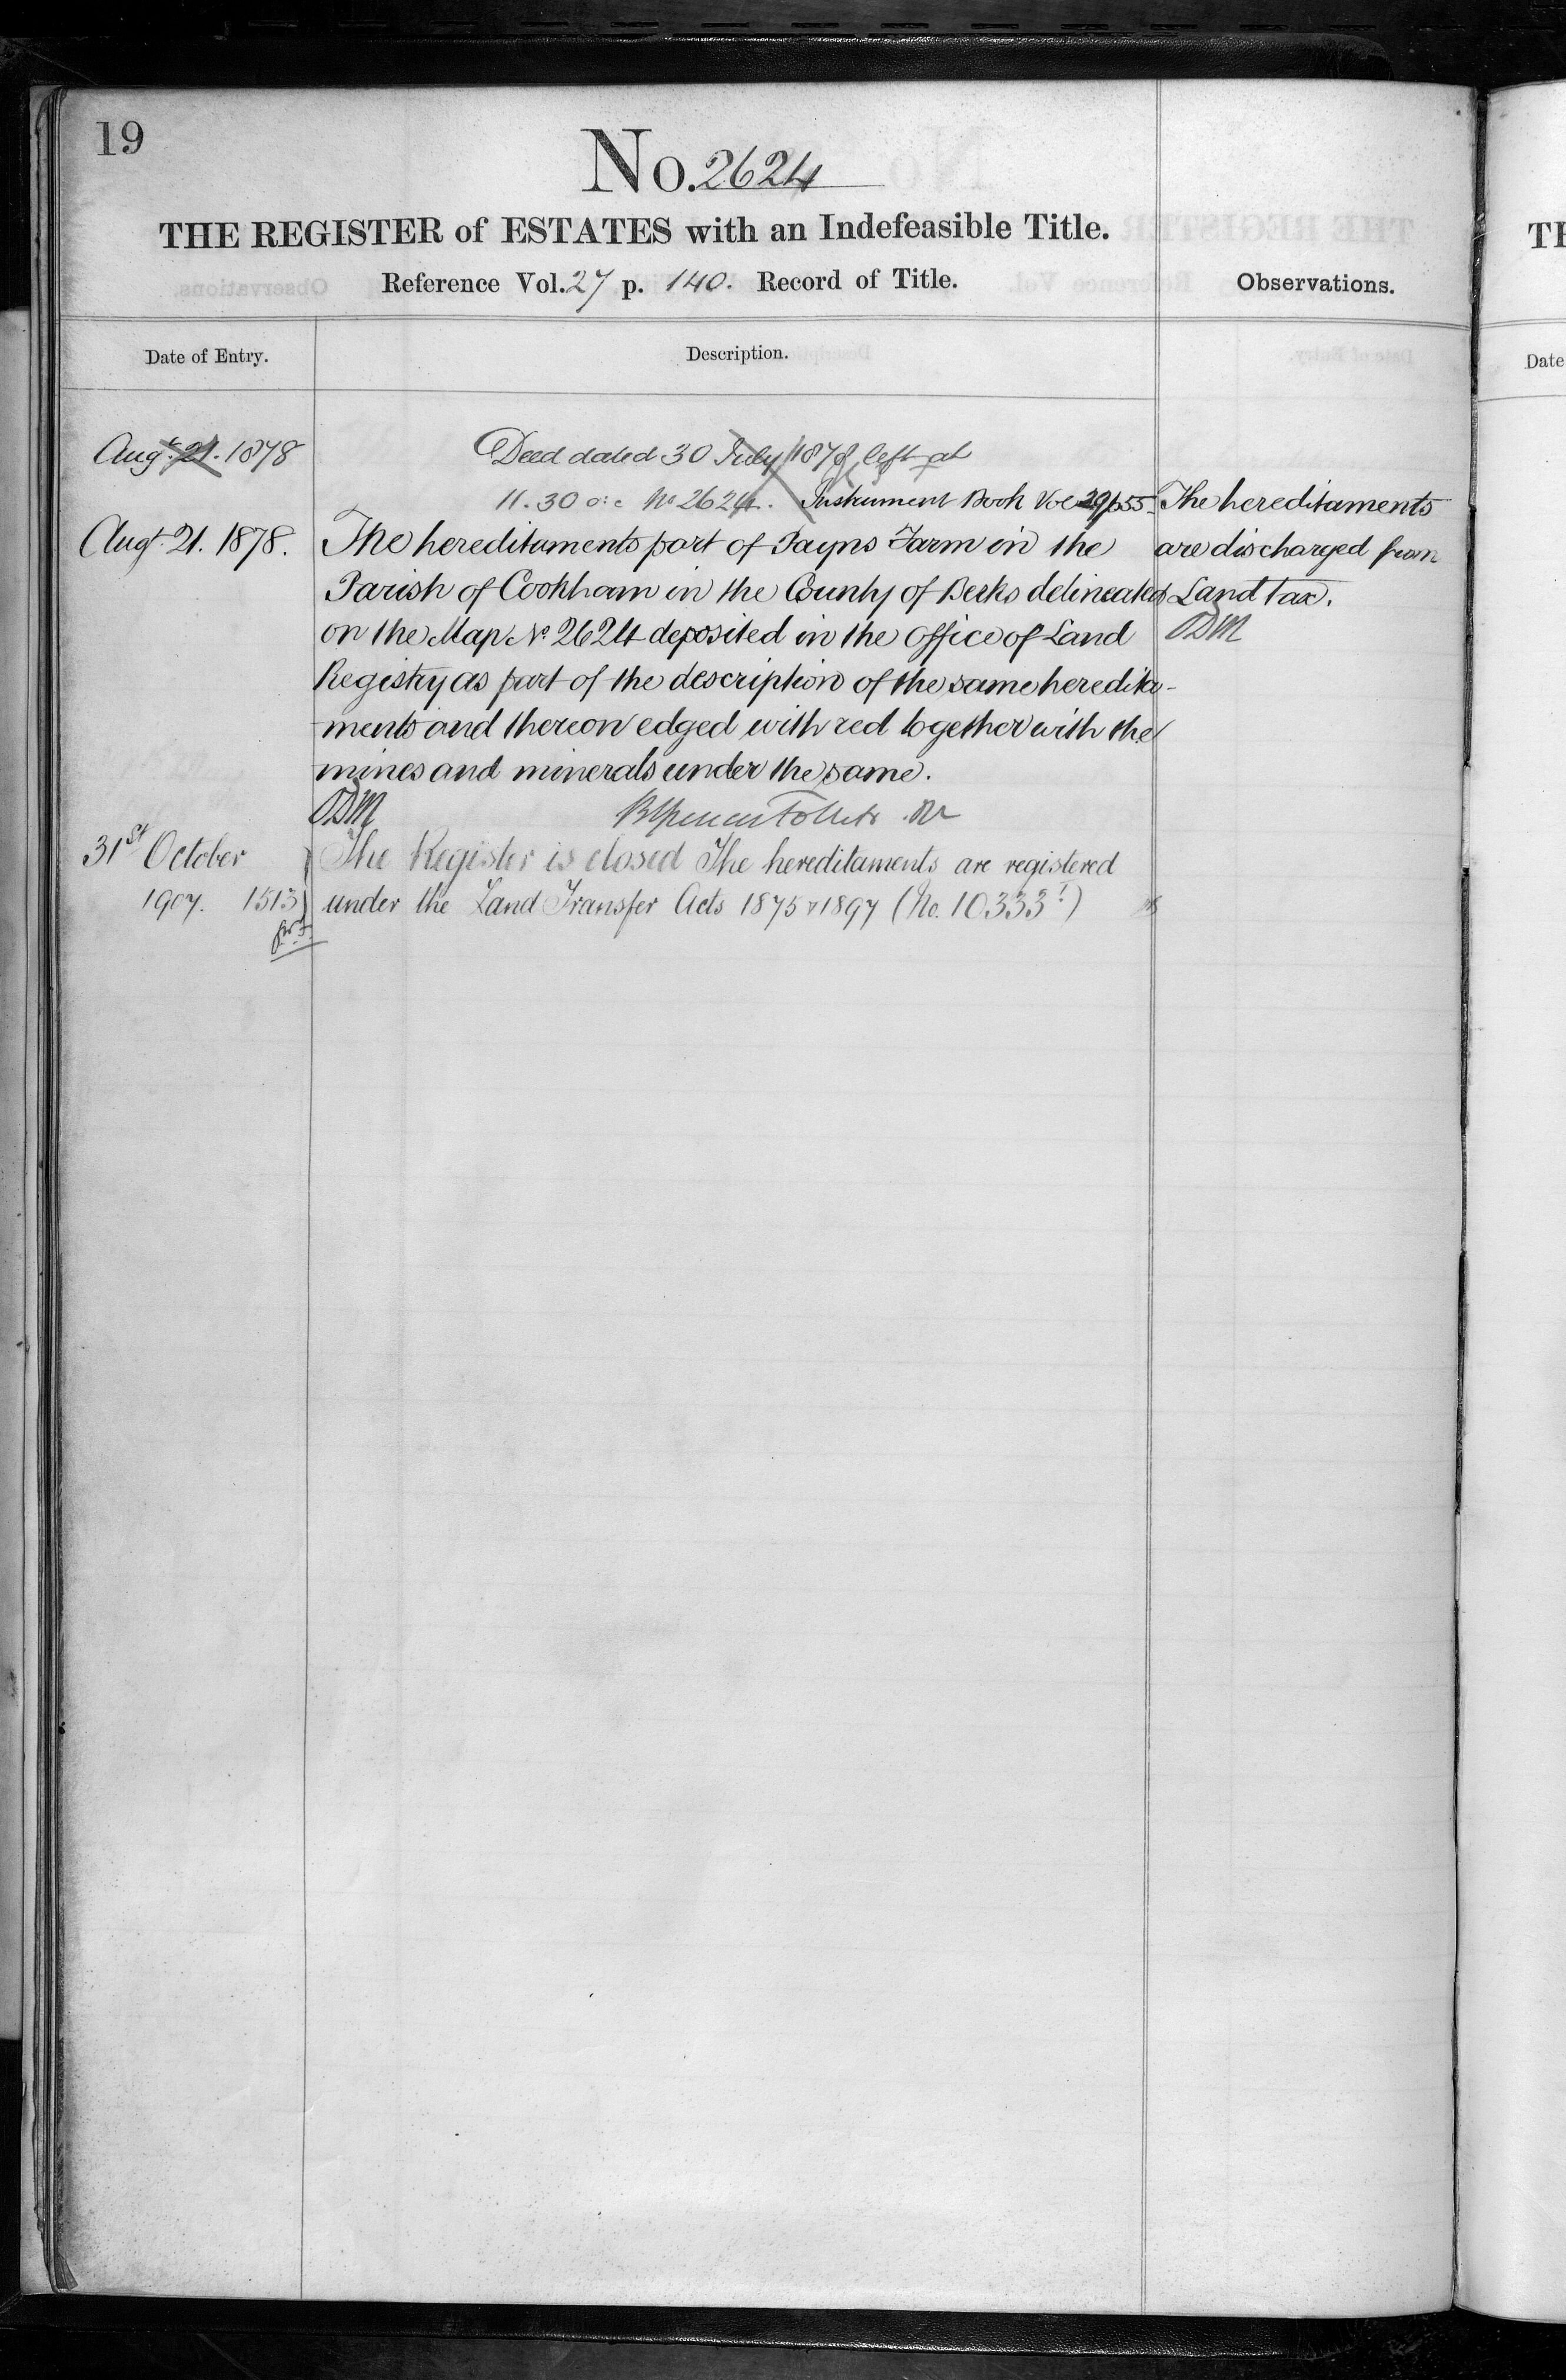 19
No. 2624
THE REGISTER of ESTATES with an Indefeasible Title.
Reference Vol. 27 p. 140. Record of Title.
Observations.
Date of Entry.
Description.
Augt. 21. 1878
Deed dated 30 July 1878, left at
11.30 o:c No 2624. Instrument Book Vol 29 p 55.
Augt. 21. 1878.
The hereditaments part of Payns Farm in the
Parish of Cookham in the County of Berks delineated
on the Map No 2624 deposited in the office of Land
Registry as part of the description of the same heredita-
ments and thereon edged with red together with the
mines and minerals under the same.
ODM
The hereditaments
are discharged from
Land Tax.
ODM
31st October
1907. 1513
The Register is closed The hereditaments are registered
under the Land Transfer Acts 1875 & 1897 (No. 10333)
TH
Date